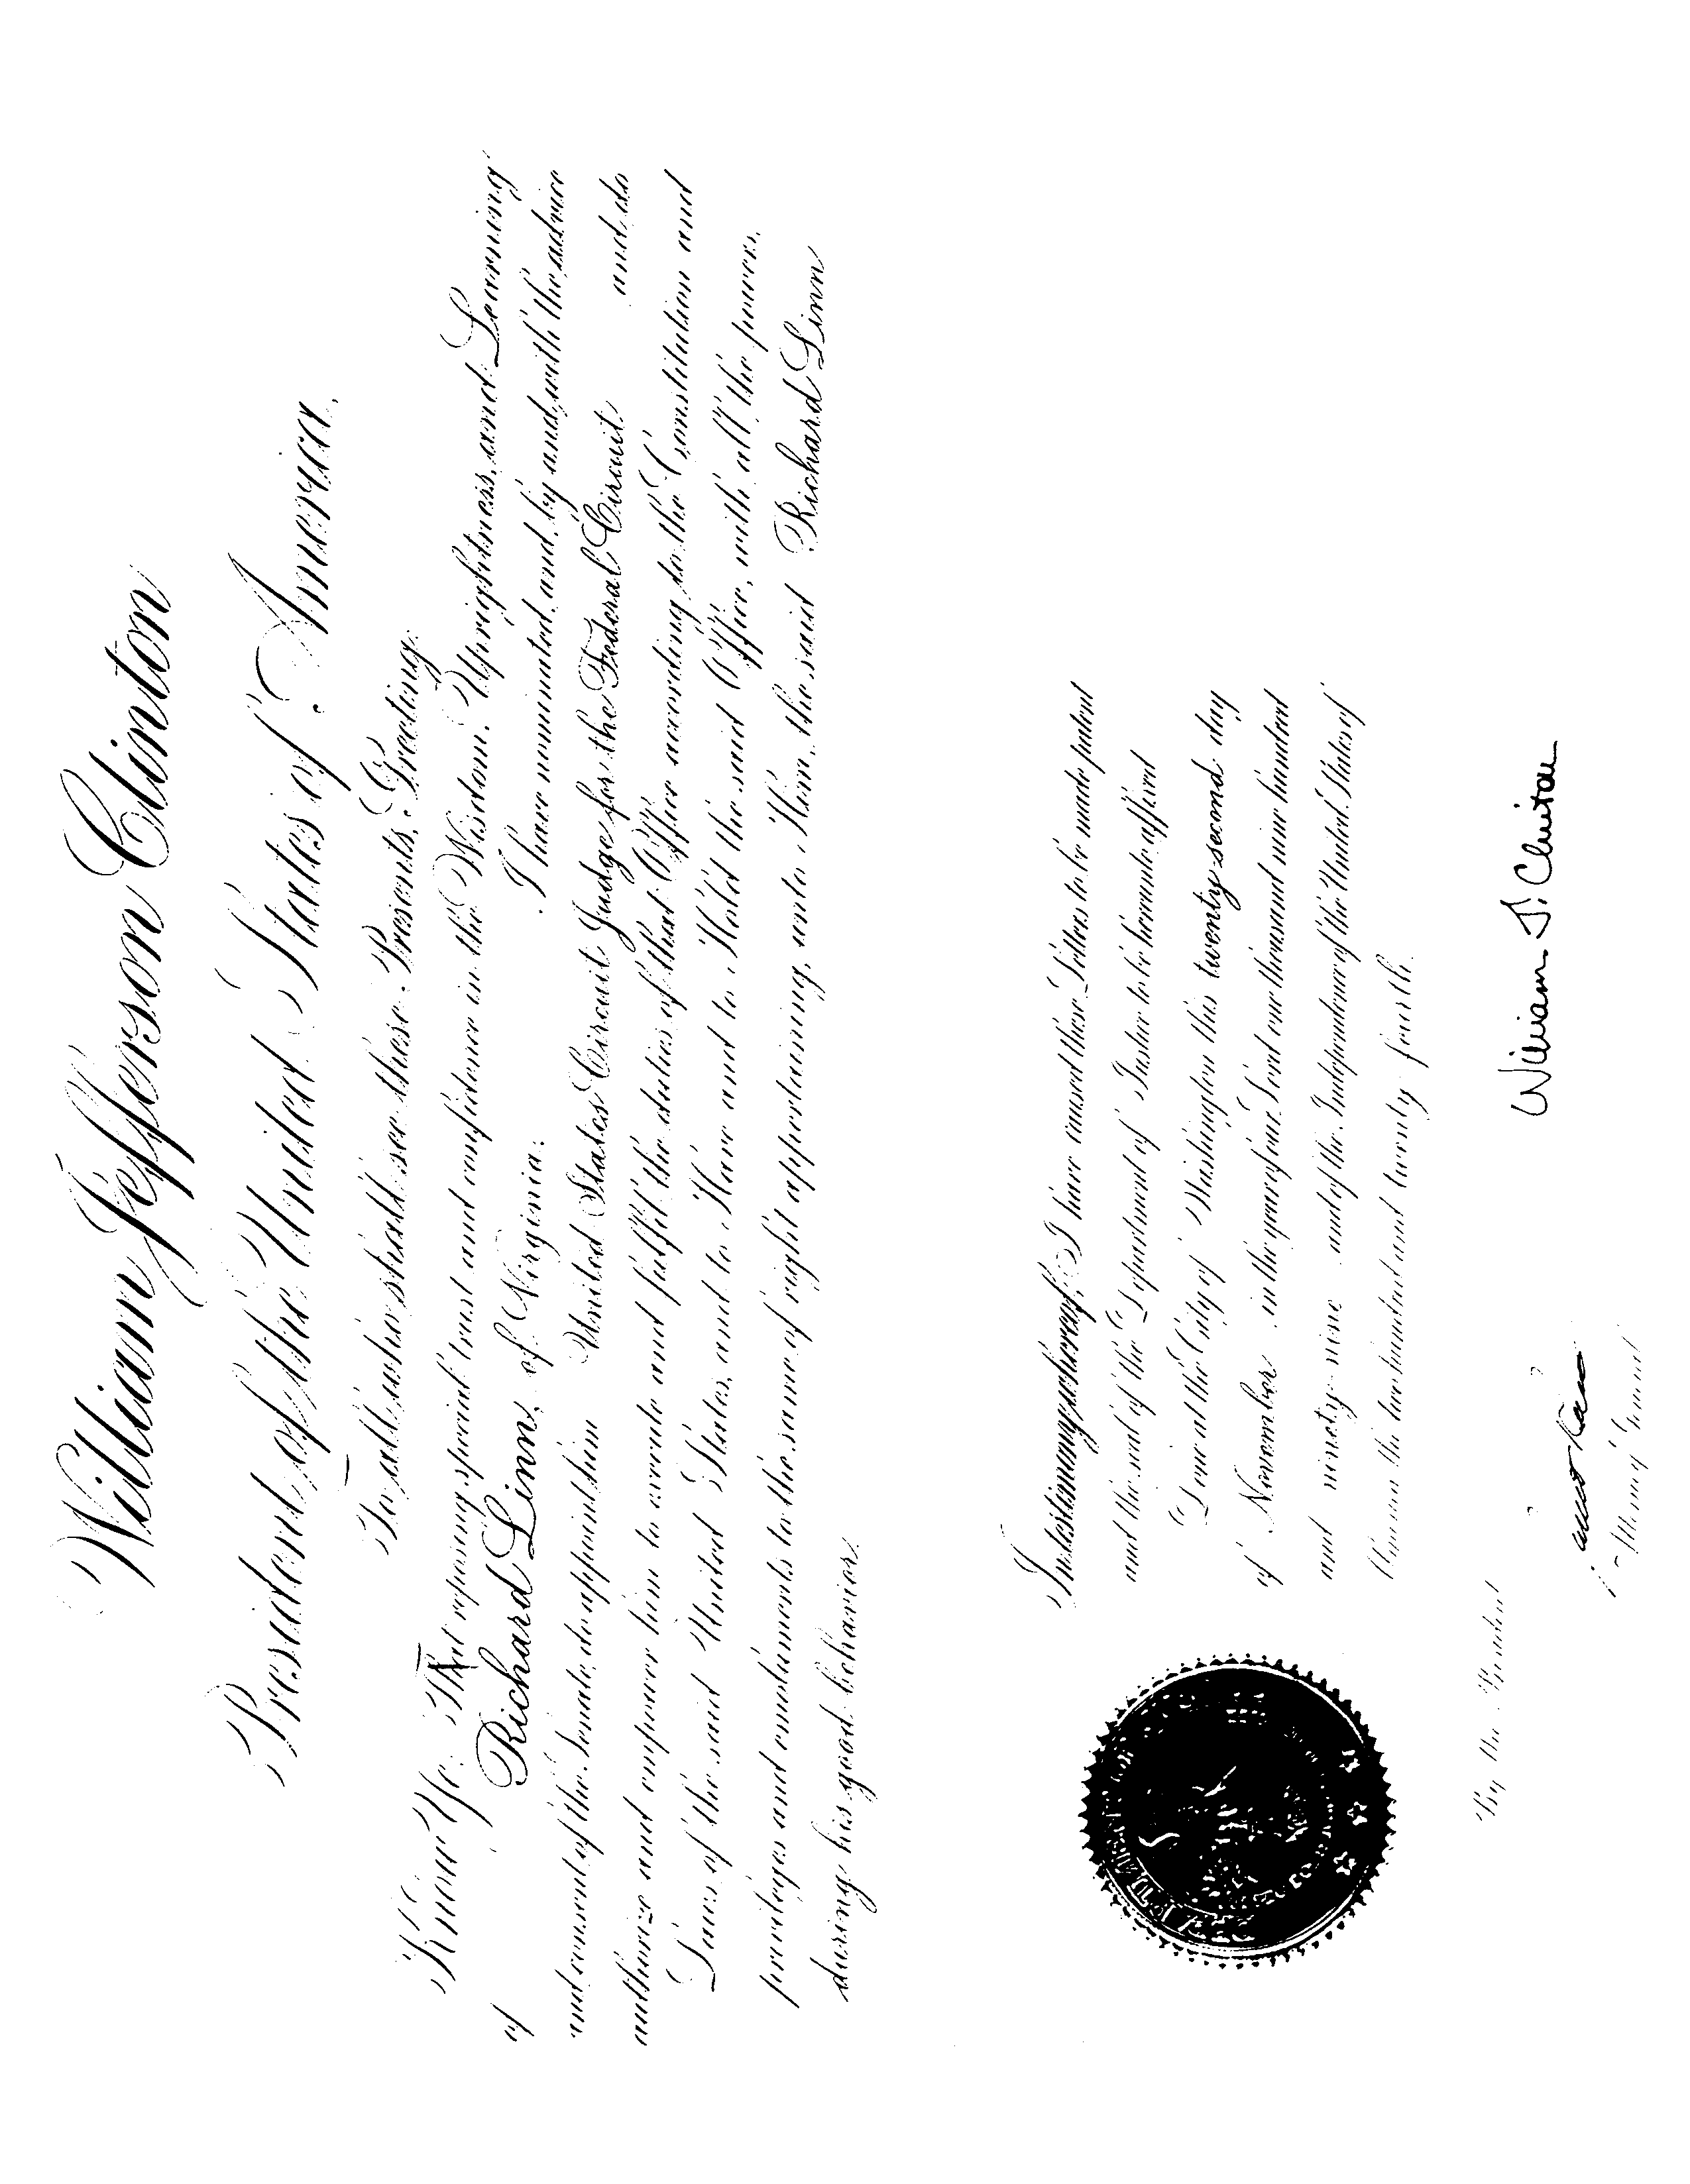 William Jefferson Clinton
President of the United States of America.
To all who shall see these Presents, Greeting:
Know Ye: That reposing special trust and confidence in the Wisdom, Uprightness, and Learning
of Richard Linn, of Virginia, I have nominated, and, by and with the advice
and consent of the Senate, do appoint him United States Circuit Judge for the Federal Circuit and do
authorize and empower him to execute and fulfil the duties of that Office according to the Constitution and
Laws of the said United States, and to Have and to Hold the said Office, with all the powers,
privileges and emoluments to the same of right appertaining, unto Him, the said Richard Linn
during his good behavior.
In testimony whereof, I have caused these Letters to be made patent
and the seal of the Department of Justice to be hereunto affixed
Done at the City of Washington this twenty-second day
of November in the year of our Lord one thousand nine hundred
and ninety-nine and of the Independence of the United States of
America the two hundred and twenty-fourth.
William J. Clinton
By the President
General